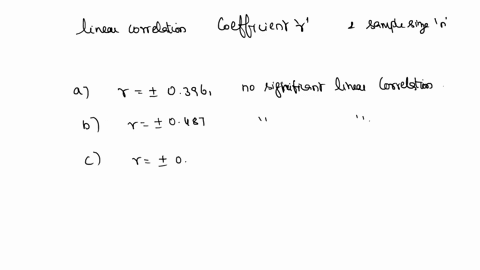 linear correlation coefficient 'r' & sample size 'n'
a) r = ± 0.396, no significant linear correlation.
b) r = ± 0.487 " ".
c) r = ± 0.